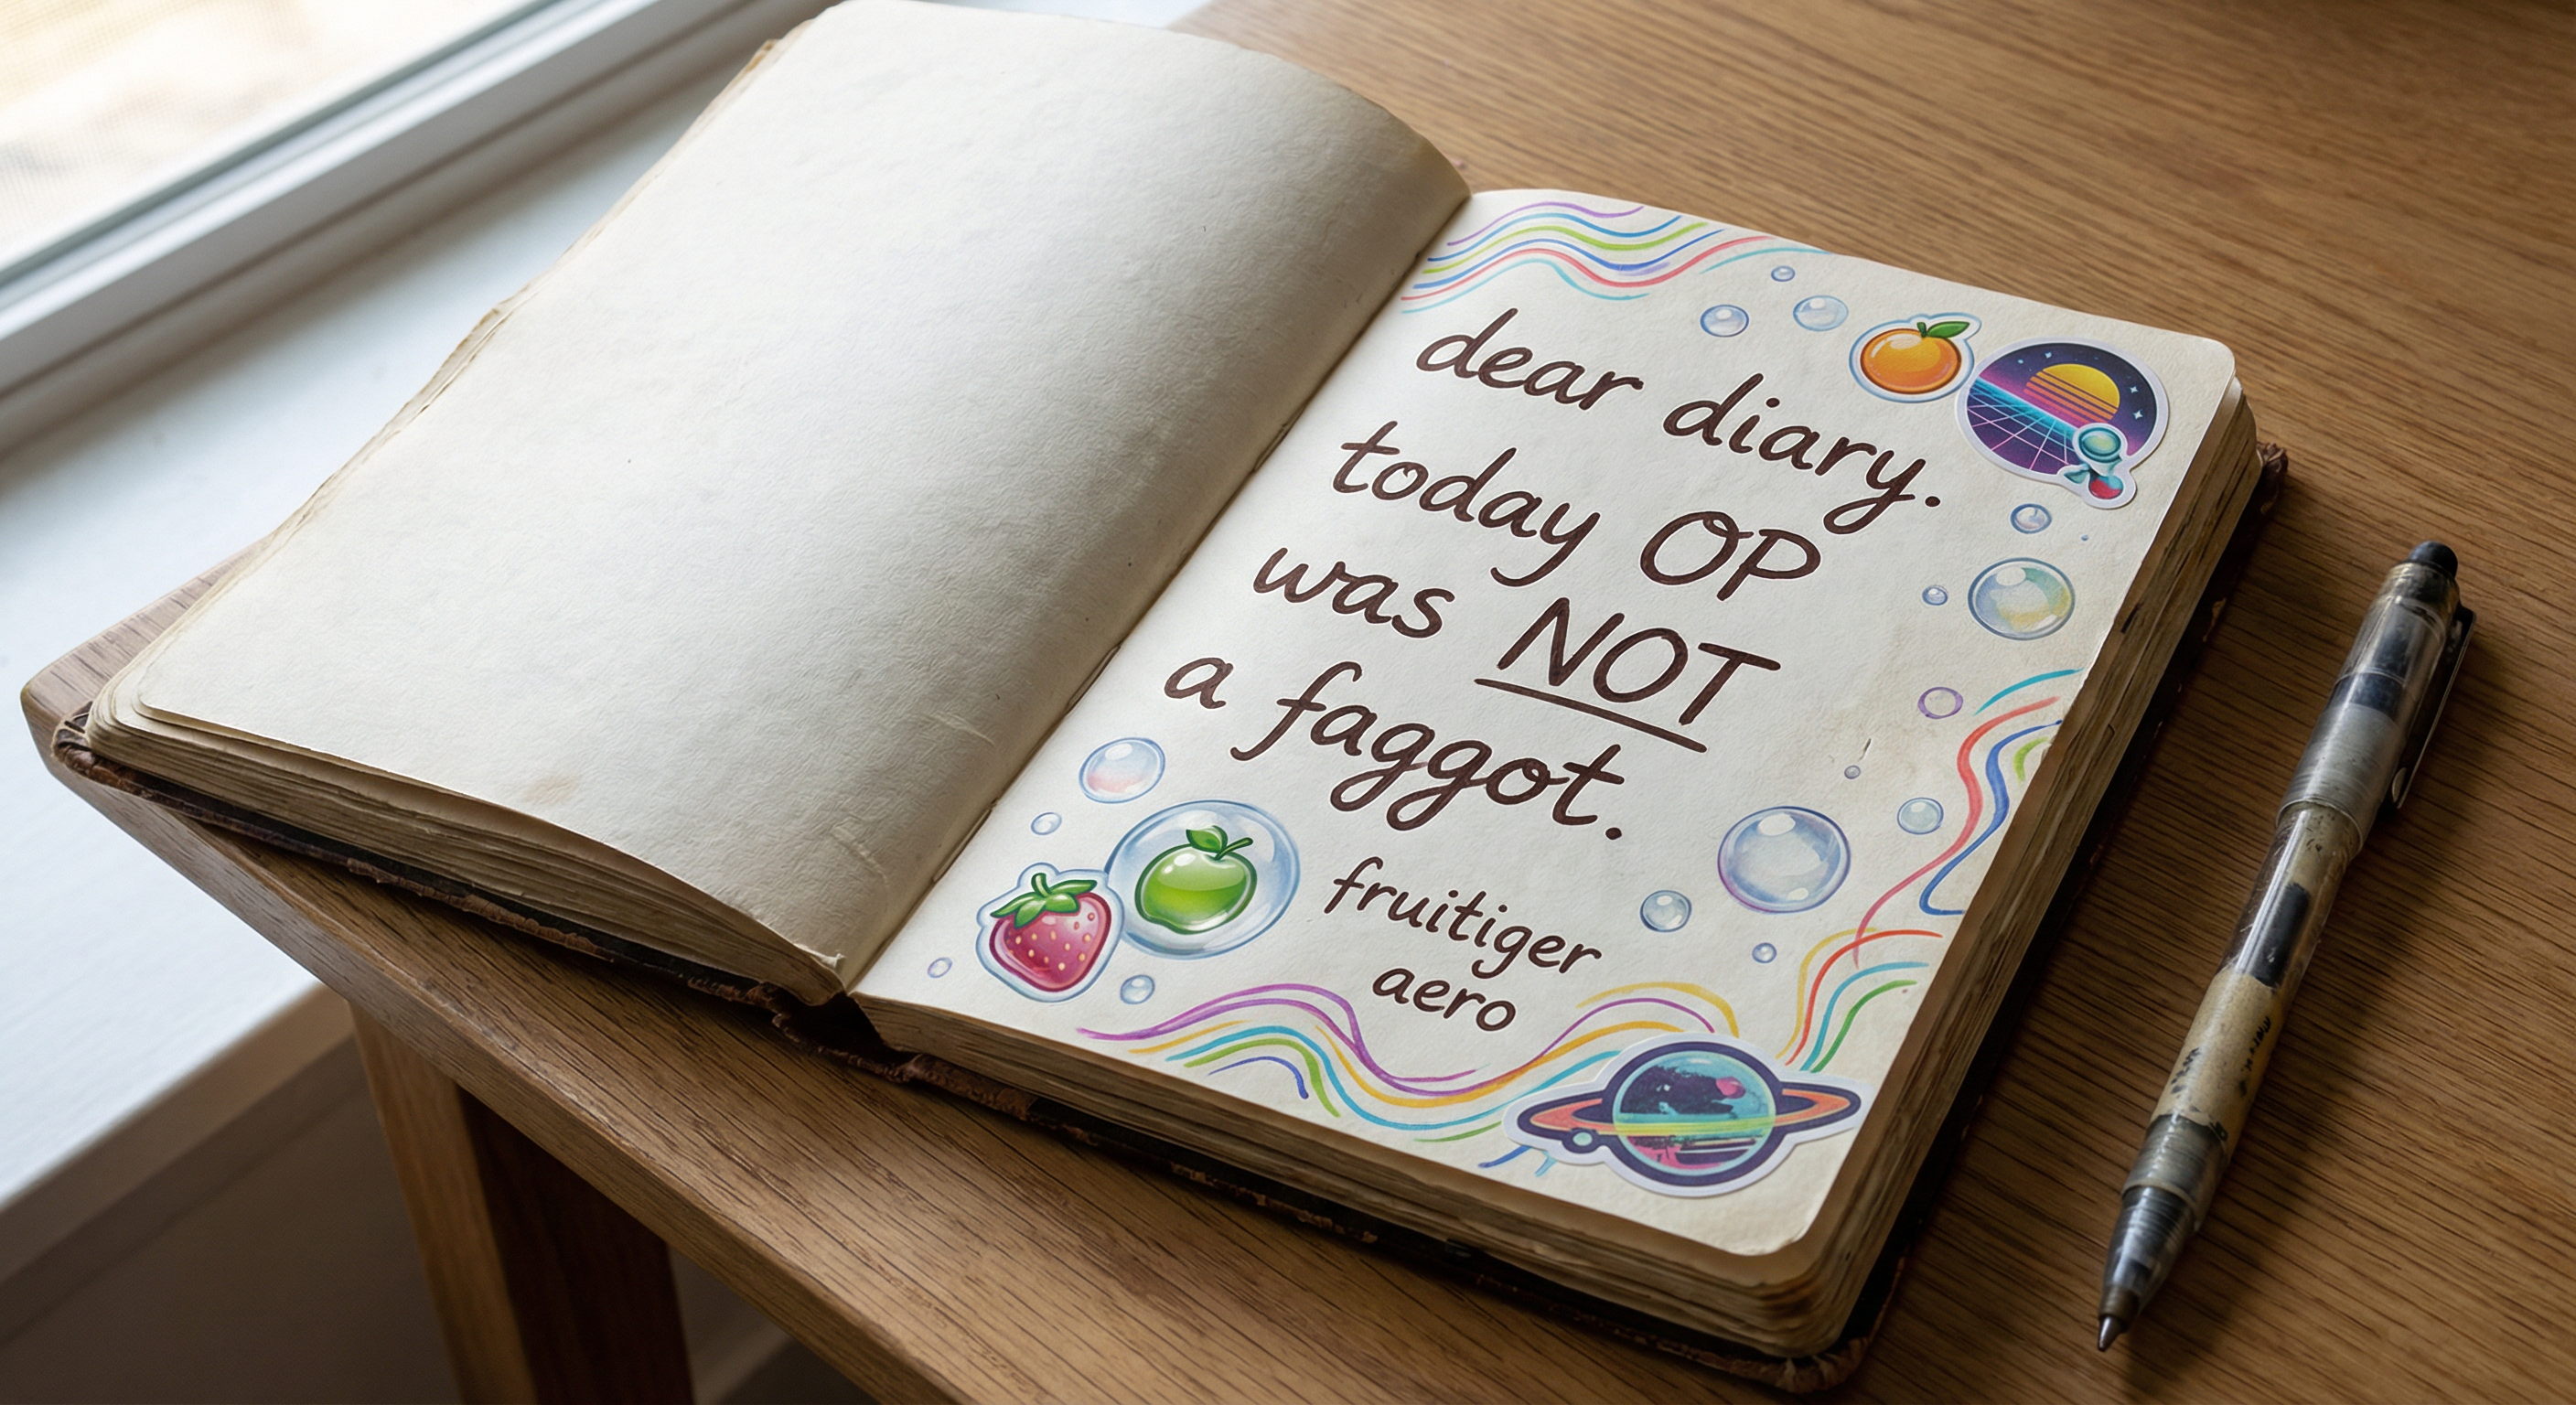 dear diary.
today OP
was NOT
a faggot.
fruitiger
aero